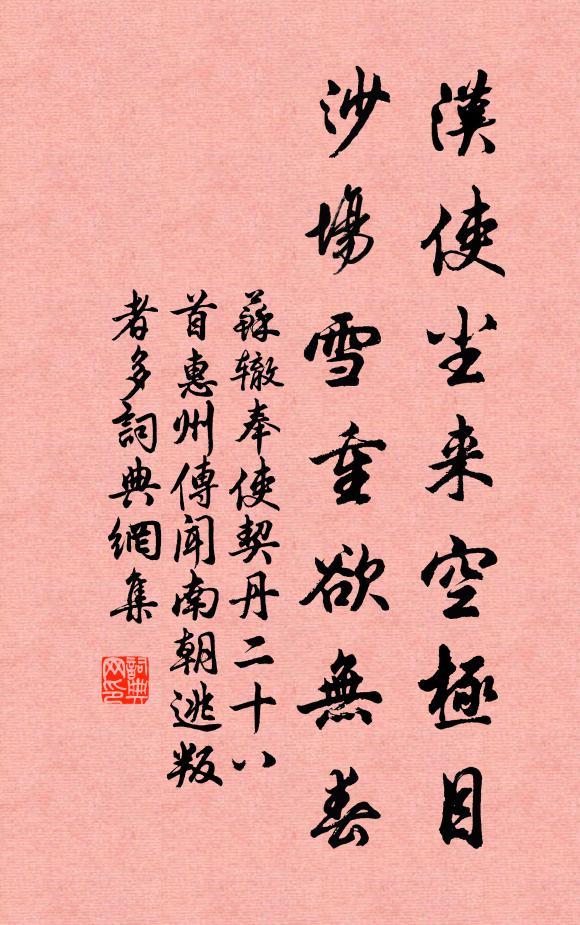 漢使尘来空極目
沙場雪重欲無春
蘇辙奉使契丹二十八
首惠州傳闻南朝逃叛
者多詞典網集
詞典网印